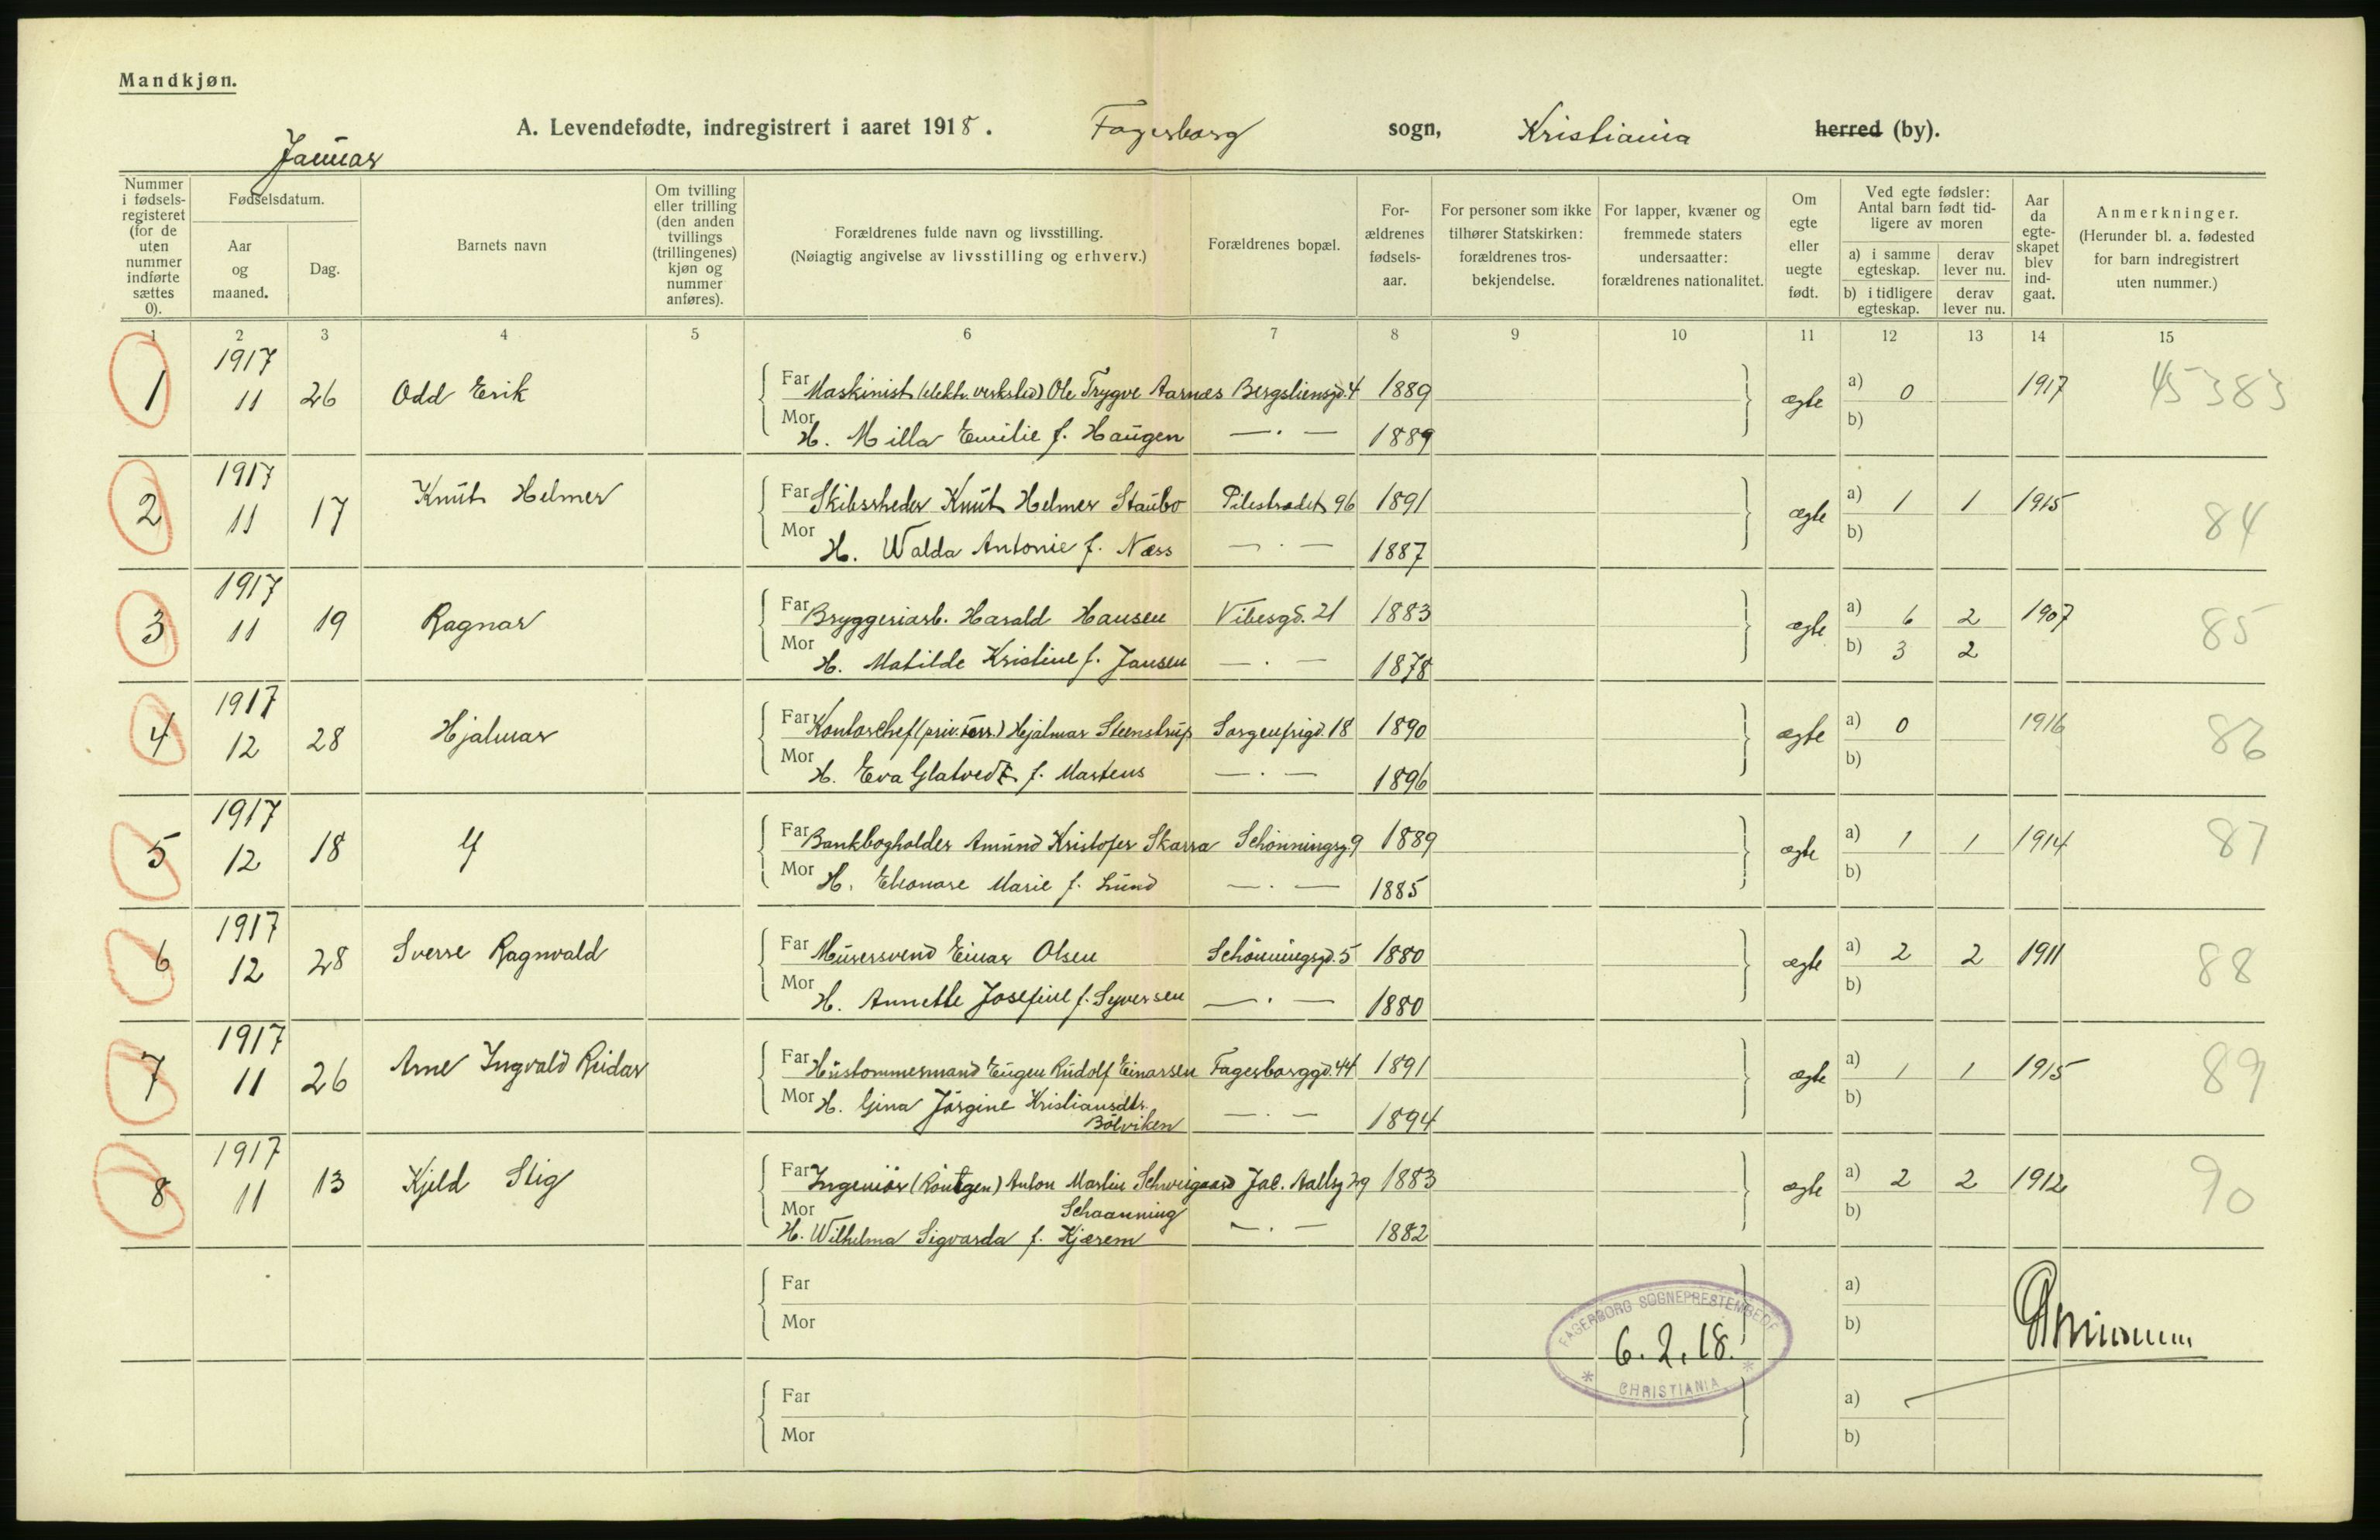 Mandkjøn.
A. Levendefødte, indregistrert i aaret 1918. Fagerborg sogn, Kristiania herred (by).
Januar
Nummer i fødsels-registeret (for de uten nummer indførte sættes 0).
Fødselsdatum.
Aar og maaned.
Dag.
Barnets navn
Om tvilling eller trilling (den anden tvillings (trillingenes) kjøn og nummer anføres).
Forældrenes fulde navn og livsstilling.
(Nøiagtig angivelse av livsstilling og erhverv.)
Forældrenes bopæl.
For-ældrenes fødsels-aar.
For personer som ikke tilhører Statskirken: forældrenes tros-bekjendelse.
For lapper, kvæner og fremmede staters undersaatter: forældrenes nationalitet.
Om egte eller uegte født.
Ved egte fødsler: Antal barn født tid-ligere av moren
a) i samme egteskap.
derav lever nu.
b) i tidligere egteskap.
derav lever nu.
Aar da egte-skapet blev ind-gaat.
Anmerkninger.
(Herunder bl. a. fødested for barn indregistrert uten nummer.)
1 2 3 4 5 6 7 8 9 10 11 12 13 14 15
1 1917 11 26 Odd Erik Far Maskinist (elektr. verksted) Ole Trygve Aarnes Bergsliensgd. 4 1889 ægte a) 0 1917 45383
Mor H. Milla Emilie f. Haugen —.— 1889 b)
2 1917 11 17 Knut Helmer Far Skibsreder Knut Helmer Staubo Pilestrædet 96 1891 ægte a) 1 1 1915 84
Mor H. Walda Antonie f. Næss —.— 1887 b)
3 1917 11 19 Ragnar Far Bryggeriarb. Harald Hansen Vibesgd. 21 1883 ægte a) 6 2 1907 85
Mor H. Matilde Kristine f. Jansen —.— 1878 b) 3 2
4 1917 12 28 Hjalmar Far Kontorchef (priv. forr.) Hjalmar Steenstrup Sorgenfrigd. 18 1890 ægte a) 0 1916 86
Mor H. Eva Glatvedt f. Martens —.— 1896 b)
5 1917 12 18 Ulf Far Bankbogholder Amund Kristofer Skarra Schönningsg. 9 1889 ægte a) 1 1 1914 87
Mor H. Eleonore Marie f. Lund —.— 1885 b)
6 1917 12 28 Sverre Ragnvald Far Murersvend Einar Olsen Schönningsgd. 5 1880 ægte a) 2 2 1911 88
Mor H. Annette Josefine f. Syversen —.— 1880 b)
7 1917 11 26 Arne Ingvald Reidar Far Hustømmermand Eugen Rudolf Einarsen Fagerborggd. 44 1891 ægte a) 1 1 1915 89
Mor H. Gina Jörgine Kristiansdtr. Bölviken —.— 1894 b)
8 1917 11 13 Kjeld Stig Far Ingeniør (Röntgen) Anton Martin Schweigaard Schaanning Jac. Aallsg 29 1883 ægte a) 2 2 1912 90
Mor H. Wilhelma Sigvarda f. Kjærem —.— 1882 b)
Far a)
Mor b)
FAGERBORG SOGNEPRESTEMBEDE
6.2.18.
* CHRISTIANIA *
Far a)
Mor b)